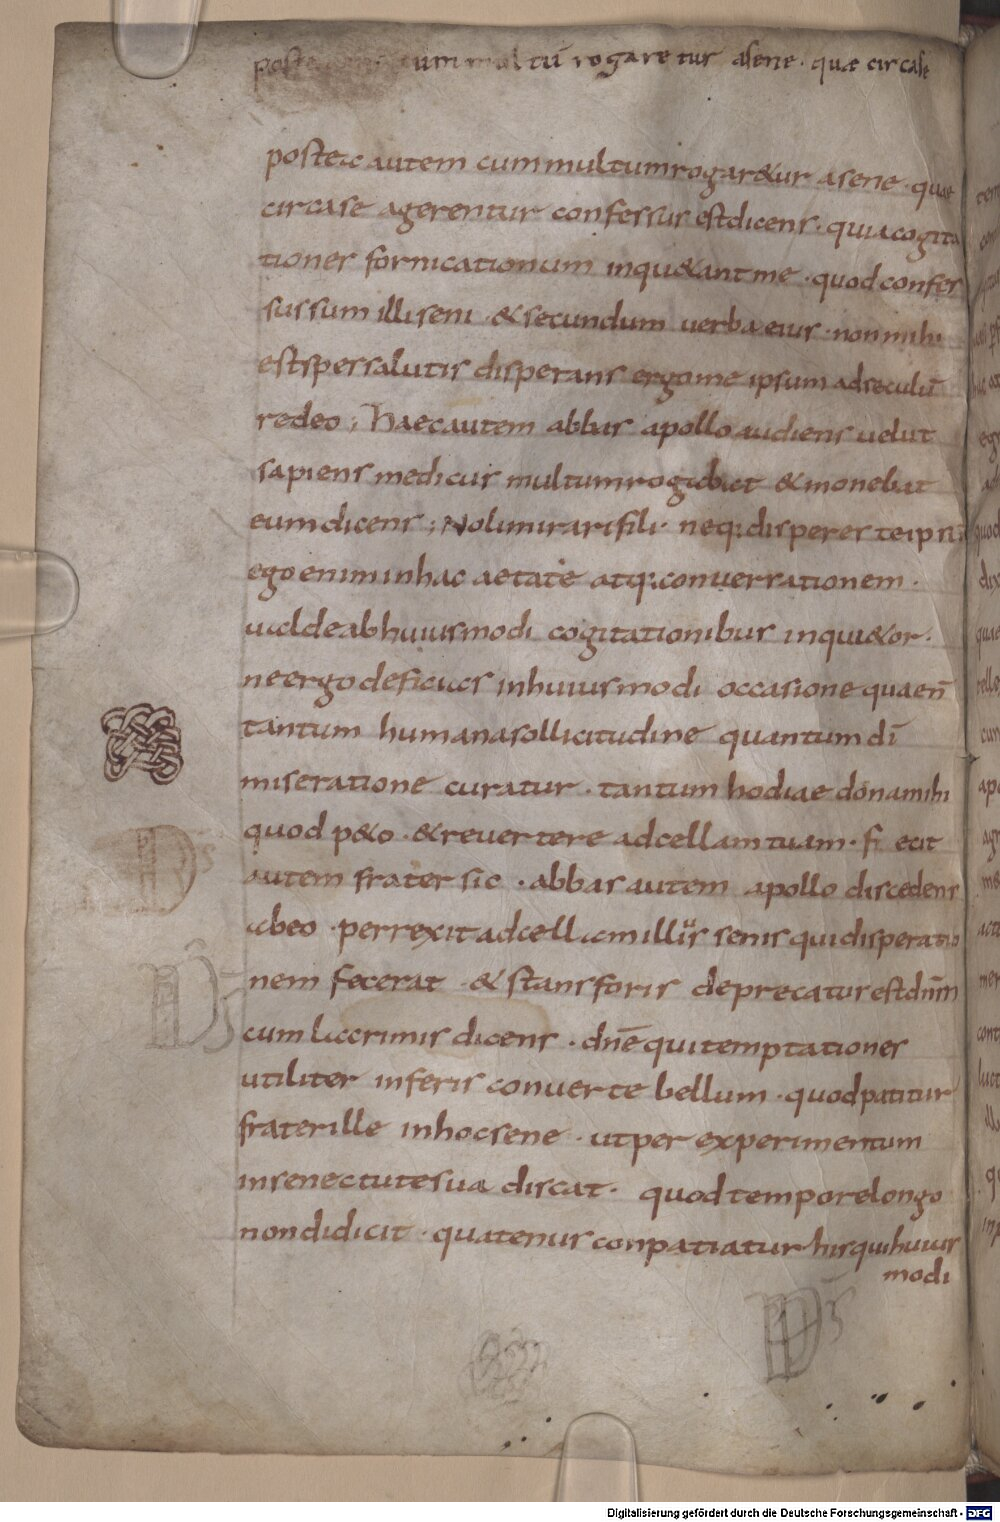 poste um multū rogaretur asene · quæ circase
postea autem cum multum rogar&ur asene · quae
circase agerentur confessus est dicens · quia cogita
tiones fornicationum inqui&ant me · quod confes
sus sum illi seni · & secundum verba eius · non mihi
est spes salutis disperans ergo me ipsum ad seculū
redeo ; haec autem abbas apollo audiens uelut
sapiens medicus multum rogabat & monebat
eum dicens ; Noli mirari fili · neq; disperes te ipsū
ego enim in hac aetate atq; conversationem ·
ualde ab huiusmodi cogitationibus inqui&or ·
ne ergo deficias in huiusmodi occasione quae n̄
tantum humana sollicitudine quantum dī
miseratione curatur · tantum hodiae dona mihi
quod p&o · & revertere ad cellam tuam · fecit
autem frater sic · abbas autem apollo discedens
abeo · perrexit ad cellam illius senis qui disperatio
nem fecerat · & stans foris deprecatus est dnm̄
cum lacrimis dicens · dnē qui temptationes
utiliter inferis converte bellum · quod patitur
frater ille in hoc sene · ut per experimentum
in senectute sua discat · quod tempore longo
non didicit · quatenus conpatiatur his qui huius
modi
Digitalisierung gefördert durch die Deutsche Forschungsgemeinschaft - DFG